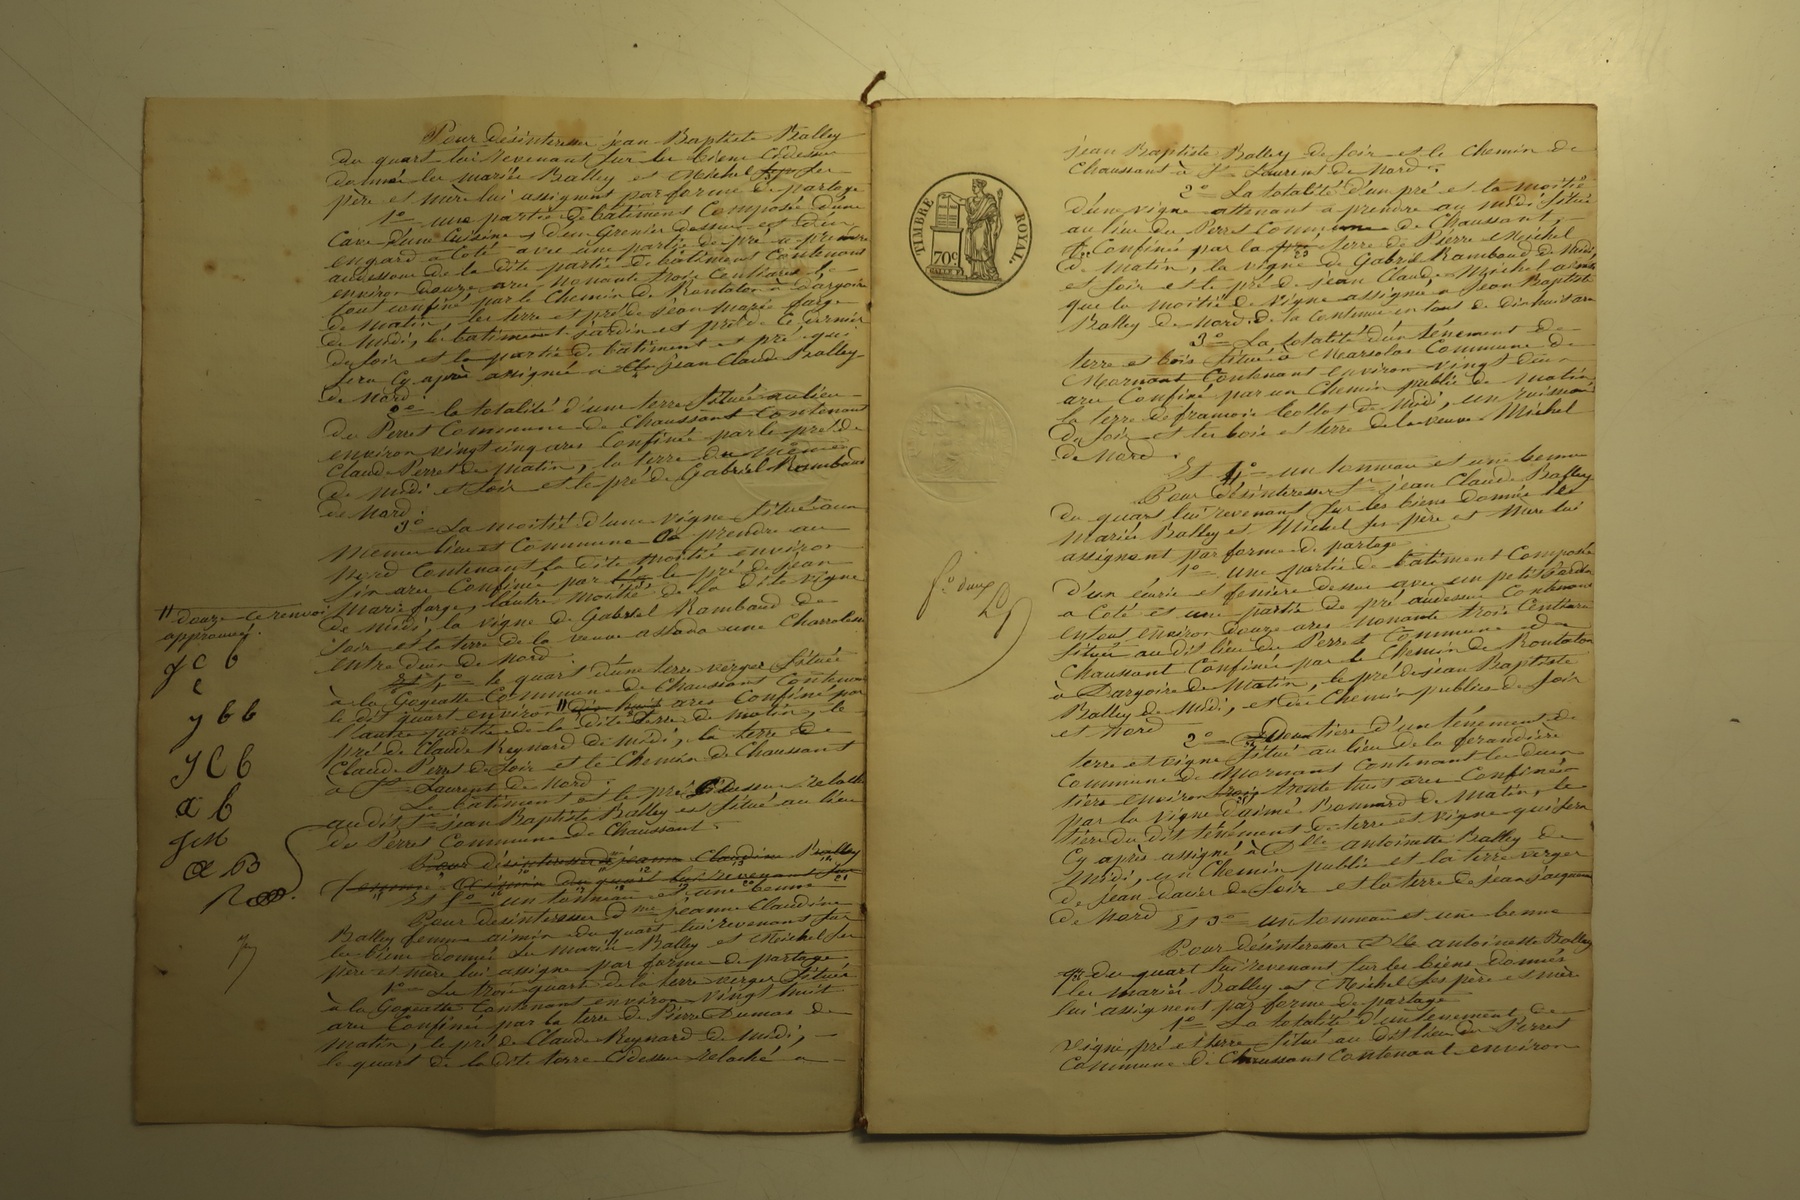 Pour désintéresser jean Baptiste Balley
du quart lui revenant sur les biens cidessus
donnés les mariés Balley et Michel ses
père et mère lui assignent par forme de partage
1o une partie de bâtiment Composée d'une
Cave d'une Cuisine et d'un Grenier dessus et d'un
engard à Coté avec une partie de pré à prendre
audessous de la dite partie de bâtiment Contenant
environ douze ares nonante trois Centiares le
tout confiné par le Chemin de Rontalon à dargoire
de matin, les terre et pré de jean marie farge
de midi, le bâtiment jardin et pré de ce dernier
du soir et la partie de bâtiment et pré qui
sera Cy après assignée à jean Claude Balley
de Nord.
2o la totalité d'une terre située au lieu
du Perret Commune de Chaussant Contenant
environ vingt cinq ares Confinée par le pré de
Claude Perret de matin, la terre du même
de midi et soir et le pré de Gabriel Rambaud
de Nord.
3o La moitié d'une vigne située aux
mêmes lieu et Commune à prendre au
nord Contenant la dite moitié environ
six ares Confinée par le pré de jean
Marie farge, l'autre moitié de la dite vigne
de midi, la vigne de Gabriel Rambaud de
soir et la terre de la veuve assada une Charrolière
entre deux de nord.
Et 4o le quart d'une terre verger située
à la Gogeatte Commune de Chaussant Contenant
le dit quart environ " dix huit ares Confiné par
l'autre partie de la dite terre de matin, le
pré de Claude Reynard de midi, la terre de
Claude Perret de soir et le Chemin de Chaussant
à St Laurent de Nord.
Le bâtiment et le pré Cidessus relachés
audit Sr jean Baptiste Balley est situé au lieu
du Perret Commune de Chaussant.
Pour désintéresser jeanne Claudine Balley
femme aimin du quart lui revenant sur
Et 5o un tonneau et une benne
Pour désintéresser dme jeanne Claudine
Balley femme aimin du quart lui revenant sur
les biens donnés les mariés Balley et Michel ses
père et mère lui assigne par forme de partage
1o Les trois quarts de la terre verger située
à la Gogeatte Contenant environ vingt huit
ares Confinée par la terre de Pierre Dumas de
matin, le pré de Claude Reynard de midi,
le quart de la dite terre Cidessus relaché à
" douze ce renvoi
approuvé.
J C b
c
y b b
J C b
a b
J M
a B
TIMBRE ROYAL.
70c.
fo deux
jean Baptiste Balley de soir et le chemin de
Chaussant à St Laurent de Nord.
2o La totalité d'un pré et la moitié
d'une vigne attenant à prendre au midi situés
au lieu du Perret Commune de Chaussant,
Confinés par la terre de Pierre Michel
de matin, la vigne de Gabriel Rambaud de midi,
et soir et le pré de jean Claude Michel ainsi
que la moitié de vigne assignée à Jean Baptiste
Balley de Nord de la contenue en tout de dix huit ares
3o La totalité d'un ténement de
terre et bois situé à Marsolas Commune de
Mornant Contenant environ vingt deux
ares Confiné par un Chemin public de matin
la terre de françois Collot de midi, un ruisseau
du soir et les bois et terre de la veuve Michel
de Nord.
Et 4o un tonneau et une benne
Pour désintéresser Sr jean Claude Balley
du quart lui revenant sur les biens donnés les
mariés Balley et Michel ses père et mère lui
assignent par forme de partage
1o une partie de bâtiment Composée
d'un écurie et fenière dessus avec un petit jardin
a Coté et une partie de pré audessus Contenant
en tout environ douze ares nonante trois Centiares
située au dit lieu du Perret Commune de
Chaussant Confinée par le Chemin de Rontalon
à Dargoire de Matin, le pré de jean Baptiste
Balley de Midi, et du Chemin publics de soir
et Nord
2o Deux tiers d'un ténement de
terre et vigne situé au lieu de la ferandière
Commune de Mornant Contenant les deux
tiers environ trente huit ares Confinés
par la vigne d'aimé Bonnard de Matin, le
tiers du dit tenement de terre et vigne qui sera
Cy après assigné à Dlle antoinette Balley de
midi, un Chemin public et la terre verger
de jean davier de soir et la terre de jean jacques
de Nord
Et 3o un tonneau et une benne
Pour désintéresser Dlle antoinette Balley
du quart lui revenant sur les biens donnés
les mariés Balley et Michel ses père et mère
lui assignent par forme de partage
1o La totalité d'un tenement de
vigne pré et terre situé au dit lieu du Perret
Commune de Chaussant Contenant environ